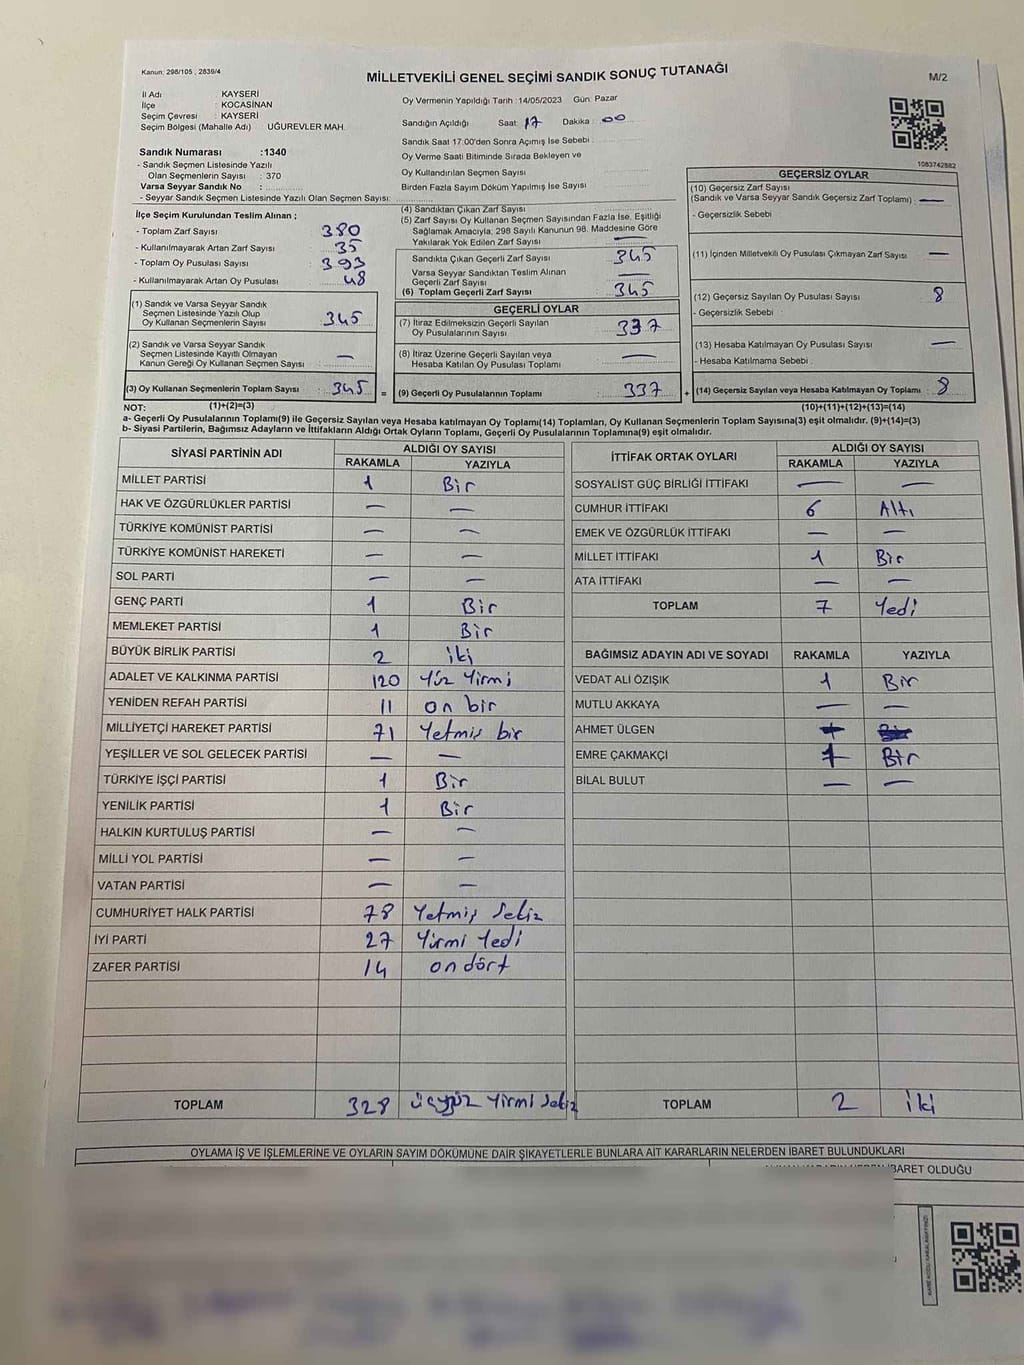 Kanun: 298/105 , 2839/4
MİLLETVEKİLİ GENEL SEÇİMİ SANDIK SONUÇ TUTANAĞI
M/2
İl Adı : KAYSERİ
İlçe : KOCASİNAN
Seçim Çevresi : KAYSERİ
Seçim Bölgesi (Mahalle Adı) : UĞUREVLER MAH.
Sandık Numarası :1340
- Sandık Seçmen Listesinde Yazılı
Olan Seçmenlerin Sayısı : 370
Varsa Seyyar Sandık No :
- Seyyar Sandık Seçmen Listesinde Yazılı Olan Seçmen Sayısı:
Oy Vermenin Yapıldığı Tarih :14/05/2023 Gün: Pazar
Sandığın Açıldığı Saat: 17 Dakika: 00
Sandık Saat 17:00'den Sonra Açımış İse Sebebi :
Oy Verme Saati Bitiminde Sırada Bekleyen ve
Oy Kullandırılan Seçmen Sayısı
Birden Fazla Sayım Döküm Yapılmış İse Sayısı
1083742882
İlçe Seçim Kurulundan Teslim Alınan ;
- Toplam Zarf Sayısı 380
- Kullanılmayarak Artan Zarf Sayısı 35
- Toplam Oy Pusulası Sayısı 393
- Kullanılmayarak Artan Oy Pusulası 48
(1) Sandık ve Varsa Seyyar Sandık
Seçmen Listesinde Yazılı Olup
Oy Kullanan Seçmenlerin Sayısı 345
(2) Sandık ve Varsa Seyyar Sandık
Seçmen Listesinde Kayıtlı Olmayan
Kanun Gereği Oy Kullanan Seçmen Sayısı —
(3) Oy Kullanan Seçmenlerin Toplam Sayısı : 345 =
(4) Sandıktan Çıkan Zarf Sayısı
(5) Zarf Sayısı Oy Kullanan Seçmen Sayısından Fazla İse, Eşitliği
Sağlamak Amacıyla, 298 Sayılı Kanunun 98. Maddesine Göre
Yakılarak Yok Edilen Zarf Sayısı —
Sandıkta Çıkan Geçerli Zarf Sayısı 345
Varsa Seyyar Sandıktan Teslim Alınan
Geçerli Zarf Sayısı —
(6) Toplam Geçerli Zarf Sayısı 345
GEÇERLİ OYLAR
(7) İtiraz Edilmeksizin Geçerli Sayılan
Oy Pusulalarının Sayısı 337
(8) İtiraz Üzerine Geçerli Sayılan veya
Hesaba Katılan Oy Pusulası Toplamı —
(9) Geçerli Oy Pusulalarının Toplamı : 337 +
GEÇERSİZ OYLAR
(10) Geçersiz Zarf Sayısı
(Sandık ve Varsa Seyyar Sandık Geçersiz Zarf Toplamı) —
- Geçersizlik Sebebi
(11) İçinden Milletvekili Oy Pusulası Çıkmayan Zarf Sayısı —
(12) Geçersiz Sayılan Oy Pusulası Sayısı 8
- Geçersizlik Sebebi :
(13) Hesaba Katılmayan Oy Pusulası Sayısı —
- Hesaba Katılmama Sebebi :
(14) Geçersiz Sayılan veya Hesaba Katılmayan Oy Toplamı 8
NOT: (1)+(2)=(3) (10)+(11)+(12)+(13)=(14)
a- Geçerli Oy Pusulalarının Toplamı(9) ile Geçersiz Sayılan veya Hesaba katılmayan Oy Toplamı(14) Toplamları, Oy Kullanan Seçmenlerin Toplam Sayısına(3) eşit olmalıdır. (9)+(14)=(3)
b- Siyasi Partilerin, Bağımsız Adayların ve İttifakların Aldığı Ortak Oyların Toplamı, Geçerli Oy Pusulalarının Toplamına(9) eşit olmalıdır.
SİYASİ PARTİNİN ADI ALDIĞI OY SAYISI
RAKAMLA YAZIYLA
MİLLET PARTİSİ 1 Bir
HAK VE ÖZGÜRLÜKLER PARTİSİ — —
TÜRKİYE KOMÜNİST PARTİSİ — —
TÜRKİYE KOMÜNİST HAREKETİ — —
SOL PARTİ — —
GENÇ PARTİ 1 Bir
MEMLEKET PARTİSİ 1 Bir
BÜYÜK BİRLİK PARTİSİ 2 iki
ADALET VE KALKINMA PARTİSİ 120 Yüz Yirmi
YENİDEN REFAH PARTİSİ 11 on bir
MİLLİYETÇİ HAREKET PARTİSİ 71 Yetmiş bir
YEŞİLLER VE SOL GELECEK PARTİSİ — —
TÜRKİYE İŞÇİ PARTİSİ 1 Bir
YENİLİK PARTİSİ 1 Bir
HALKIN KURTULUŞ PARTİSİ — —
MİLLİ YOL PARTİSİ — —
VATAN PARTİSİ — —
CUMHURİYET HALK PARTİSİ 78 Yetmiş Sekiz
İYİ PARTİ 27 Yirmi Yedi
ZAFER PARTİSİ 14 on dört
TOPLAM 328 üçyüz Yirmi Sekiz
İTTİFAK ORTAK OYLARI ALDIĞI OY SAYISI
RAKAMLA YAZIYLA
SOSYALİST GÜÇ BİRLİĞİ İTTİFAKI — —
CUMHUR İTTİFAKI 6 Altı
EMEK VE ÖZGÜRLÜK İTTİFAKI — —
MİLLET İTTİFAKI 1 Bir
ATA İTTİFAKI — —
TOPLAM 7 Yedi
BAĞIMSIZ ADAYIN ADI VE SOYADI RAKAMLA YAZIYLA
VEDAT ALİ ÖZIŞIK 1 Bir
MUTLU AKKAYA — —
AHMET ÜLGEN
EMRE ÇAKMAKÇI 1 Bir
BİLAL BULUT — —
TOPLAM 2 iki
OYLAMA İŞ VE İŞLEMLERİNE VE OYLARIN SAYIM DÖKÜMÜNE DAİR ŞİKAYETLERLE BUNLARA AİT KARARLARIN NELERDEN İBARET BULUNDUKLARI
BARET OLDUĞU